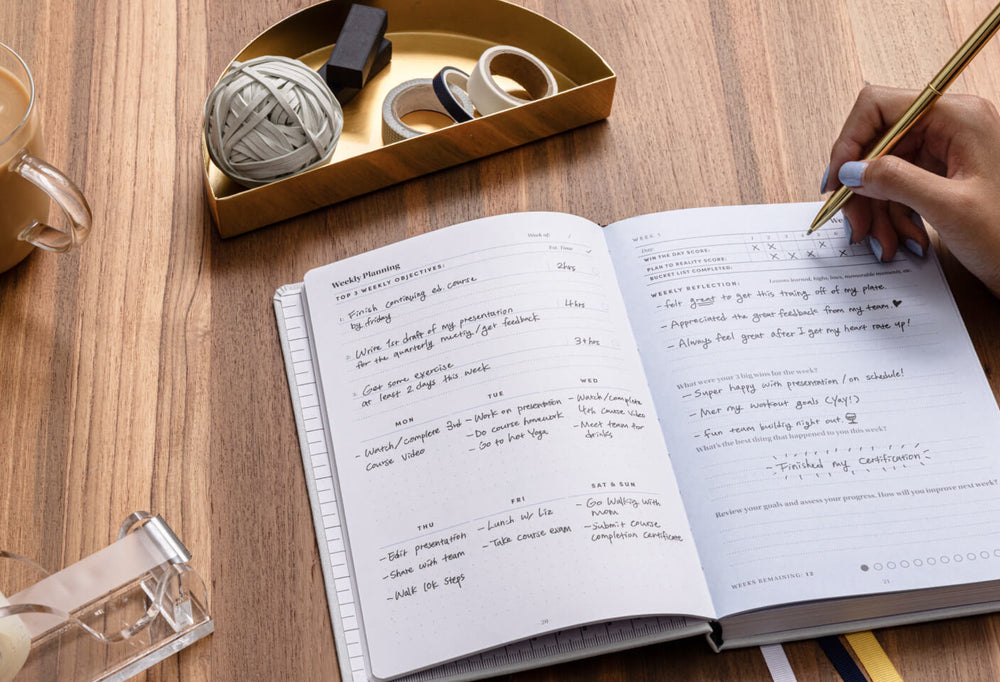 Weekly Planning
Week of: /
TOP 3 WEEKLY OBJECTIVES:
Est. Time ✓
1. Finish continuing ed. course
by friday
2hrs
2. Write 1st draft of my presentation
for the quarterly meetig/get feedback
4hrs
3. Get some exercise
at least 2 days this week
3+hrs
MON
- Watch/complete 3rd
course video
TUE
- Work on presentation
- Do course homework
- Go to hot Yoga
WED
- Watch/complete
4th course video
- Meet team for
drinks
THU
- Edit presentation
- Share with team
- Walk 10k steps
FRI
- Lunch w/ Liz
- Take course exam
SAT & SUN
- Go Walkig with
mom
- Submit course
completion certificate
20
WEEK 1
We
Day: 1 2 3 4 5 6
WIN THE DAY SCORE: X X X
PLAN TO REALITY SCORE: X X X X
BUCKET LIST COMPLETED:
WEEKLY REFLECTION: Lessons learned, highs, lows, memorable moments, etc.
- felt great to get this traing off of my plate.
- Appreciated the great feedback from my team ♥
- Always feel great after I get my heart rate up!
What were your 3 big wins for the week?
- Super happy with presentation/on schedule!
- Met my workout goals (Yay!)
- fun team building night out.
What's the best thing that happened to you this week?
- Finished my Certification
Review your goals and assess your progress. How will you improve next week?
WEEKS REMAINING: 12
21